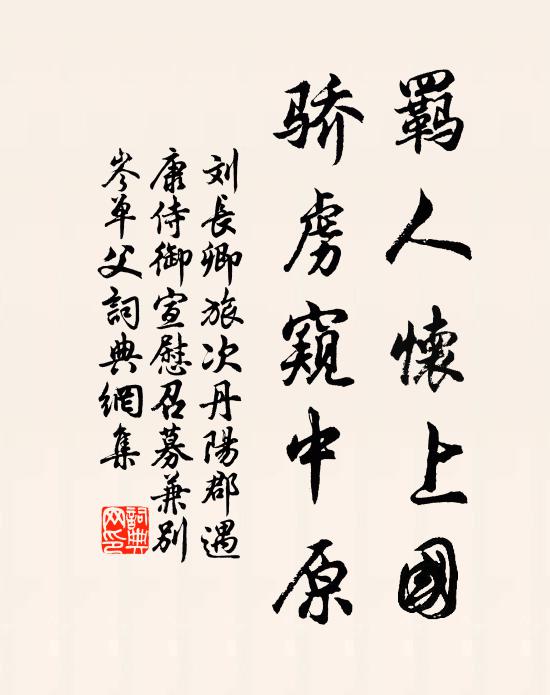 羈人懷上國
骄虜窺中原
刘長卿旅次丹陽郡遇
康侍御宣慰召募兼別
岑单父詞典網集
詞典
网印